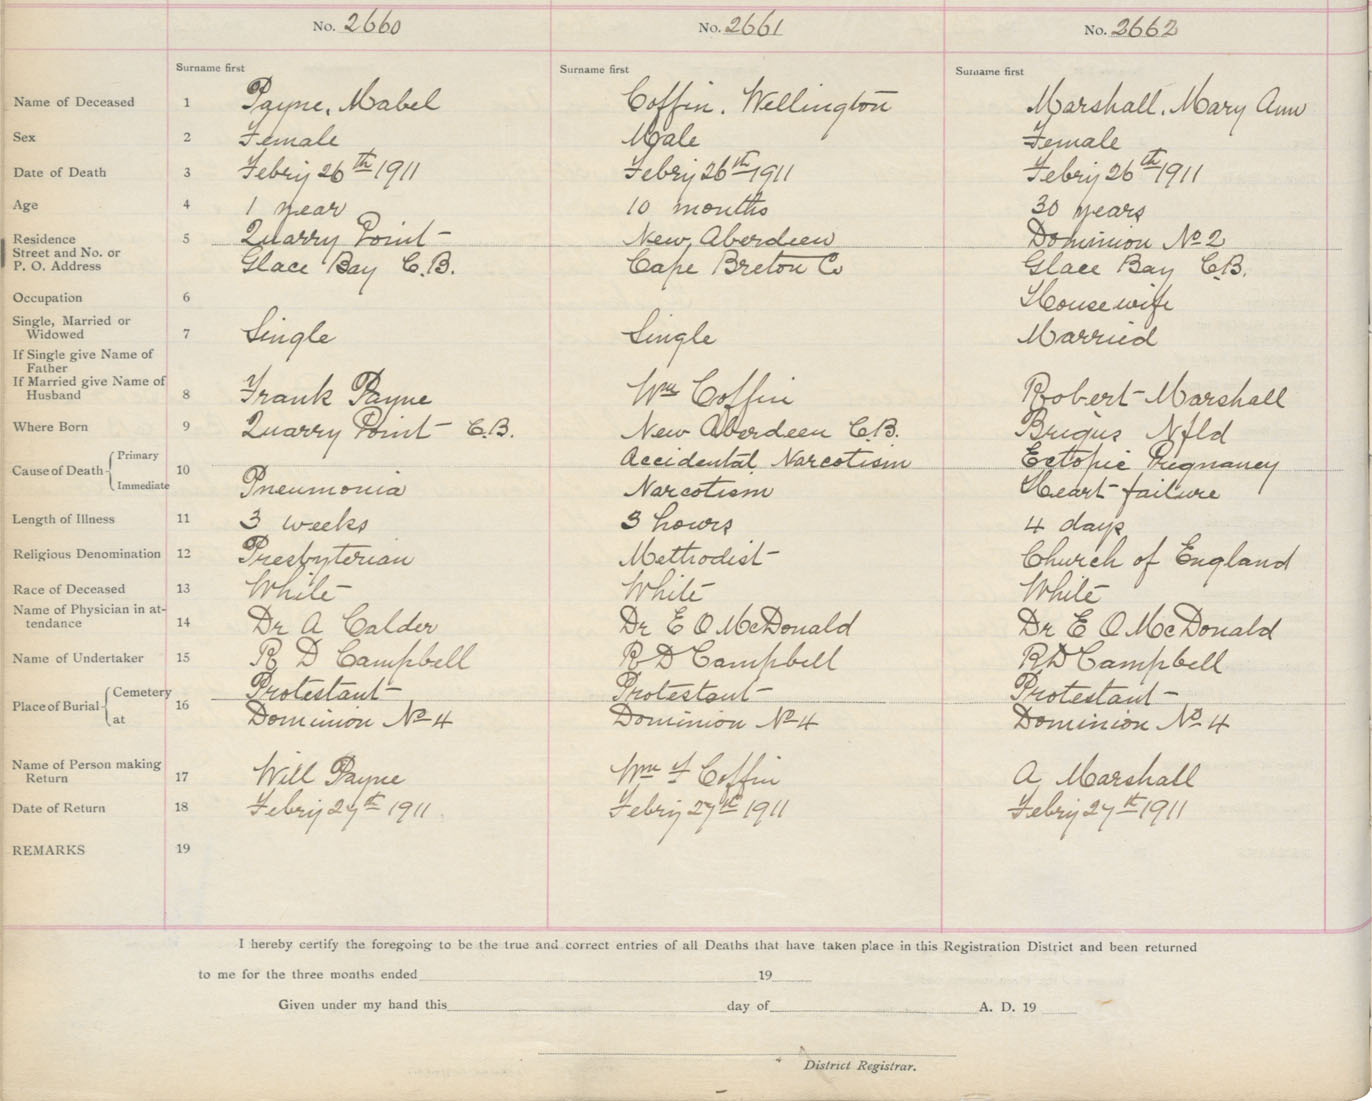 No. 2660 No. 2661 No. 2662
Surname first Surname first Surname first
Name of Deceased 1 Payne, Mabel Coffin. Wellington Marshall. Mary Ann
Sex 2 Female Male Female
Date of Death 3 Febry 26th 1911 Febry 26th 1911 Febry 26th 1911
Age 4 1 year 10 months 30 years
Residence 5 Quarry Point New Aberdeen Dominion No 2
Street and No. or
P. O. Address Glace Bay C.B. Cape Breton Co Glace Bay C.B.
Occupation 6 Housewife
Single, Married or
Widowed 7 Single Single Married
If Single give Name of
Father
If Married give Name of
Husband 8 Frank Payne Wm Coffin Robert Marshall
Where Born 9 Quarry Point C.B. New Aberdeen C.B. Brigus Nfld
Cause of Death { Primary 10 Accidental Narcotism Ectopic Pregnancy
Immediate Pneumonia Narcotism Heart failure
Length of Illness 11 3 weeks 3 hours 4 days
Religious Denomination 12 Presbyterian Methodist Church of England
Race of Deceased 13 White White White
Name of Physician in at-
tendance 14 Dr A Calder Dr E O McDonald Dr E O McDonald
Name of Undertaker 15 R D Campbell R D Campbell R D Campbell
Place of Burial { Cemetery 16 Protestant Protestant Protestant
at Dominion No 4 Dominion No 4 Dominion No 4
Name of Person making
Return 17 Will Payne Wm F Coffin A Marshall
Date of Return 18 Febry 27th 1911 Febry 27th 1911 Febry 27th 1911
REMARKS 19
I hereby certify the foregoing to be the true and correct entries of all Deaths that have taken place in this Registration District and been returned
to me for the three months ended 19
Given under my hand this day of A. D. 19
District Registrar.